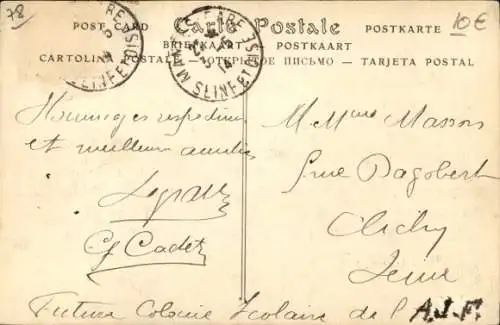 78
10€
Carte Postale
POST CARD
POSTKARTE
BRIEFKAART
POSTKAART
CARTOLINA POSTALE - ОТКРЫТОЕ ПИСЬМО - TARJETA POSTAL
Hommages respectueux
et meilleures amitiés
Cadet
Future Colonie Scolaire de l'A.J.F.
M. Mme Masson
rue Dagobert
Clichy
Seine